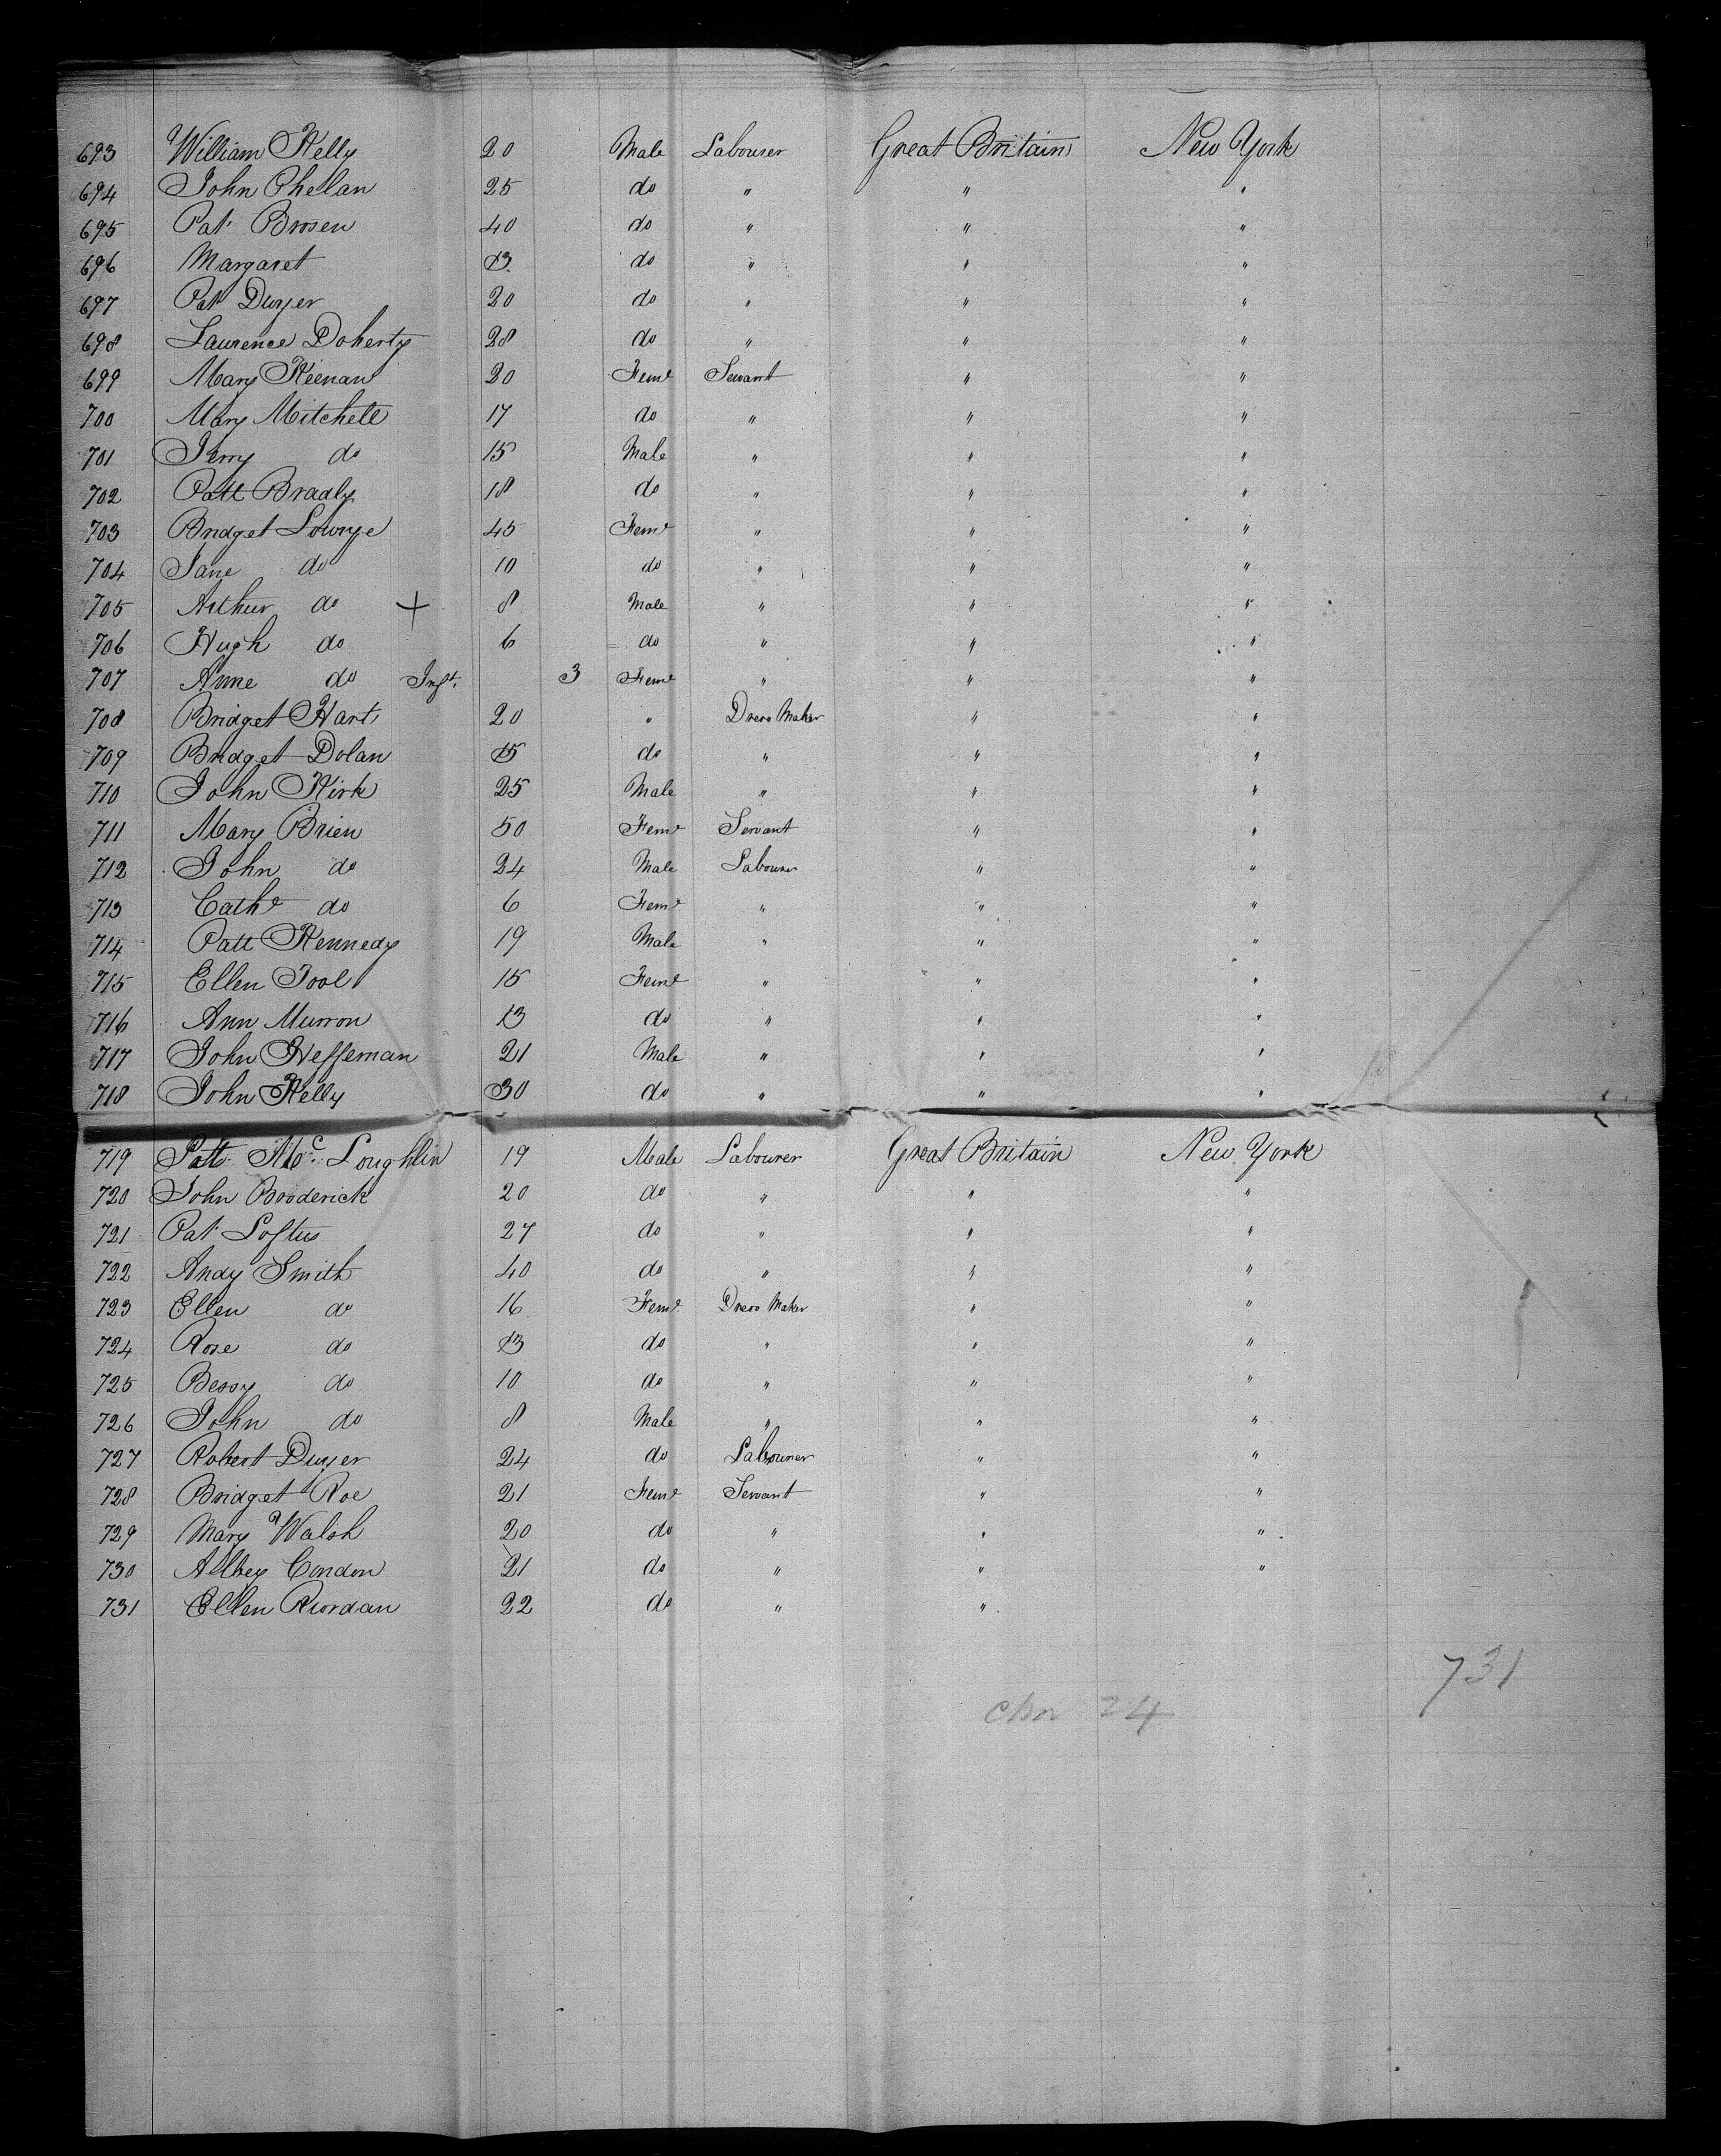 693 William Kelly 20 Male Labourer Great Britain New York
694 John Phelan 25 do " " "
695 Pat Brosen 40 do " " "
696 Margaret 13 do " " "
697 Pat Dwyer 20 do " " "
698 Laurence Doherty 28 do " " "
699 Mary Keenan 20 Feme Servant " "
700 Mary Mitchell 17 do " " "
701 Jerry do 15 Male " " "
702 Patt Brady 18 do " " "
703 Bridget Lowrye 45 Feme " " "
704 Jane do 10 do " " "
705 Arthur do + 8 Male " " "
706 Hugh do 6 do " " "
707 Anne do Inft. 3 Feme " " "
708 Bridget Hart 20 " Dress Maker " "
709 Bridget Dolan 15 do " " "
710 John Kirk 25 Male " " "
711 Mary Brien 50 Feme Servant " "
712 John do 24 Male Labourer " "
713 Cathe do 6 Feme " " "
714 Patt Kennedy 19 Male " " "
715 Ellen Tool 15 Feme " " "
716 Ann Murron 13 do " " "
717 John Heffernan 21 Male " " "
718 John Kelly 30 do " " "
719 Patt McLoughlin 19 Male Labourer Great Britain New York
720 John Broderick 20 do " " "
721 Pat Loftus 27 do " " "
722 Andy Smith 40 do " " "
723 Ellen do 16 Feme Dress Maker " "
724 Rose do 13 do " " "
725 Bessy do 10 do " " "
726 John do 8 Male " " "
727 Robert Dwyer 24 do Labourer " "
728 Bridget Roe 21 Feme Servant " "
729 Mary Walsh 20 do " " "
730 Albey Condon 21 do " " "
731 Ellen Riordan 22 do " "
731
24